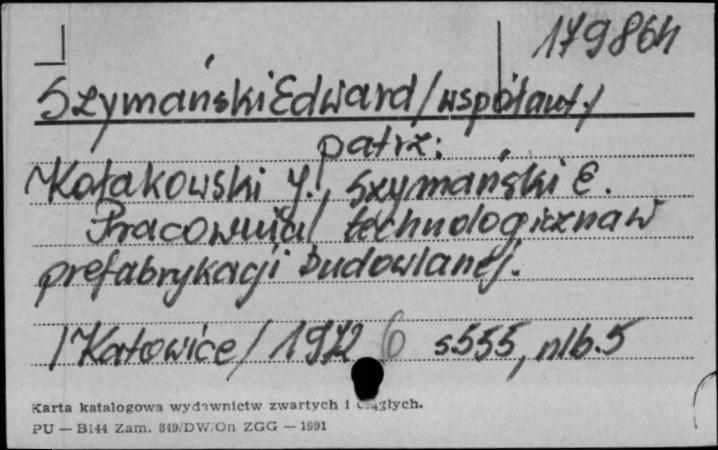 179864
Szymański Edward /współaut./
patrz:
Kołakowski J., Szymański E.
Pracownia technologiczna w
prefabrykacji budowlanej.
/Katowice/ 1972 6 s555, nlb.5
Karta katalogowa wydawnictw zwartych i ciągłych.
PU — B144 Zam. 849/DW/On ZGG — 1991